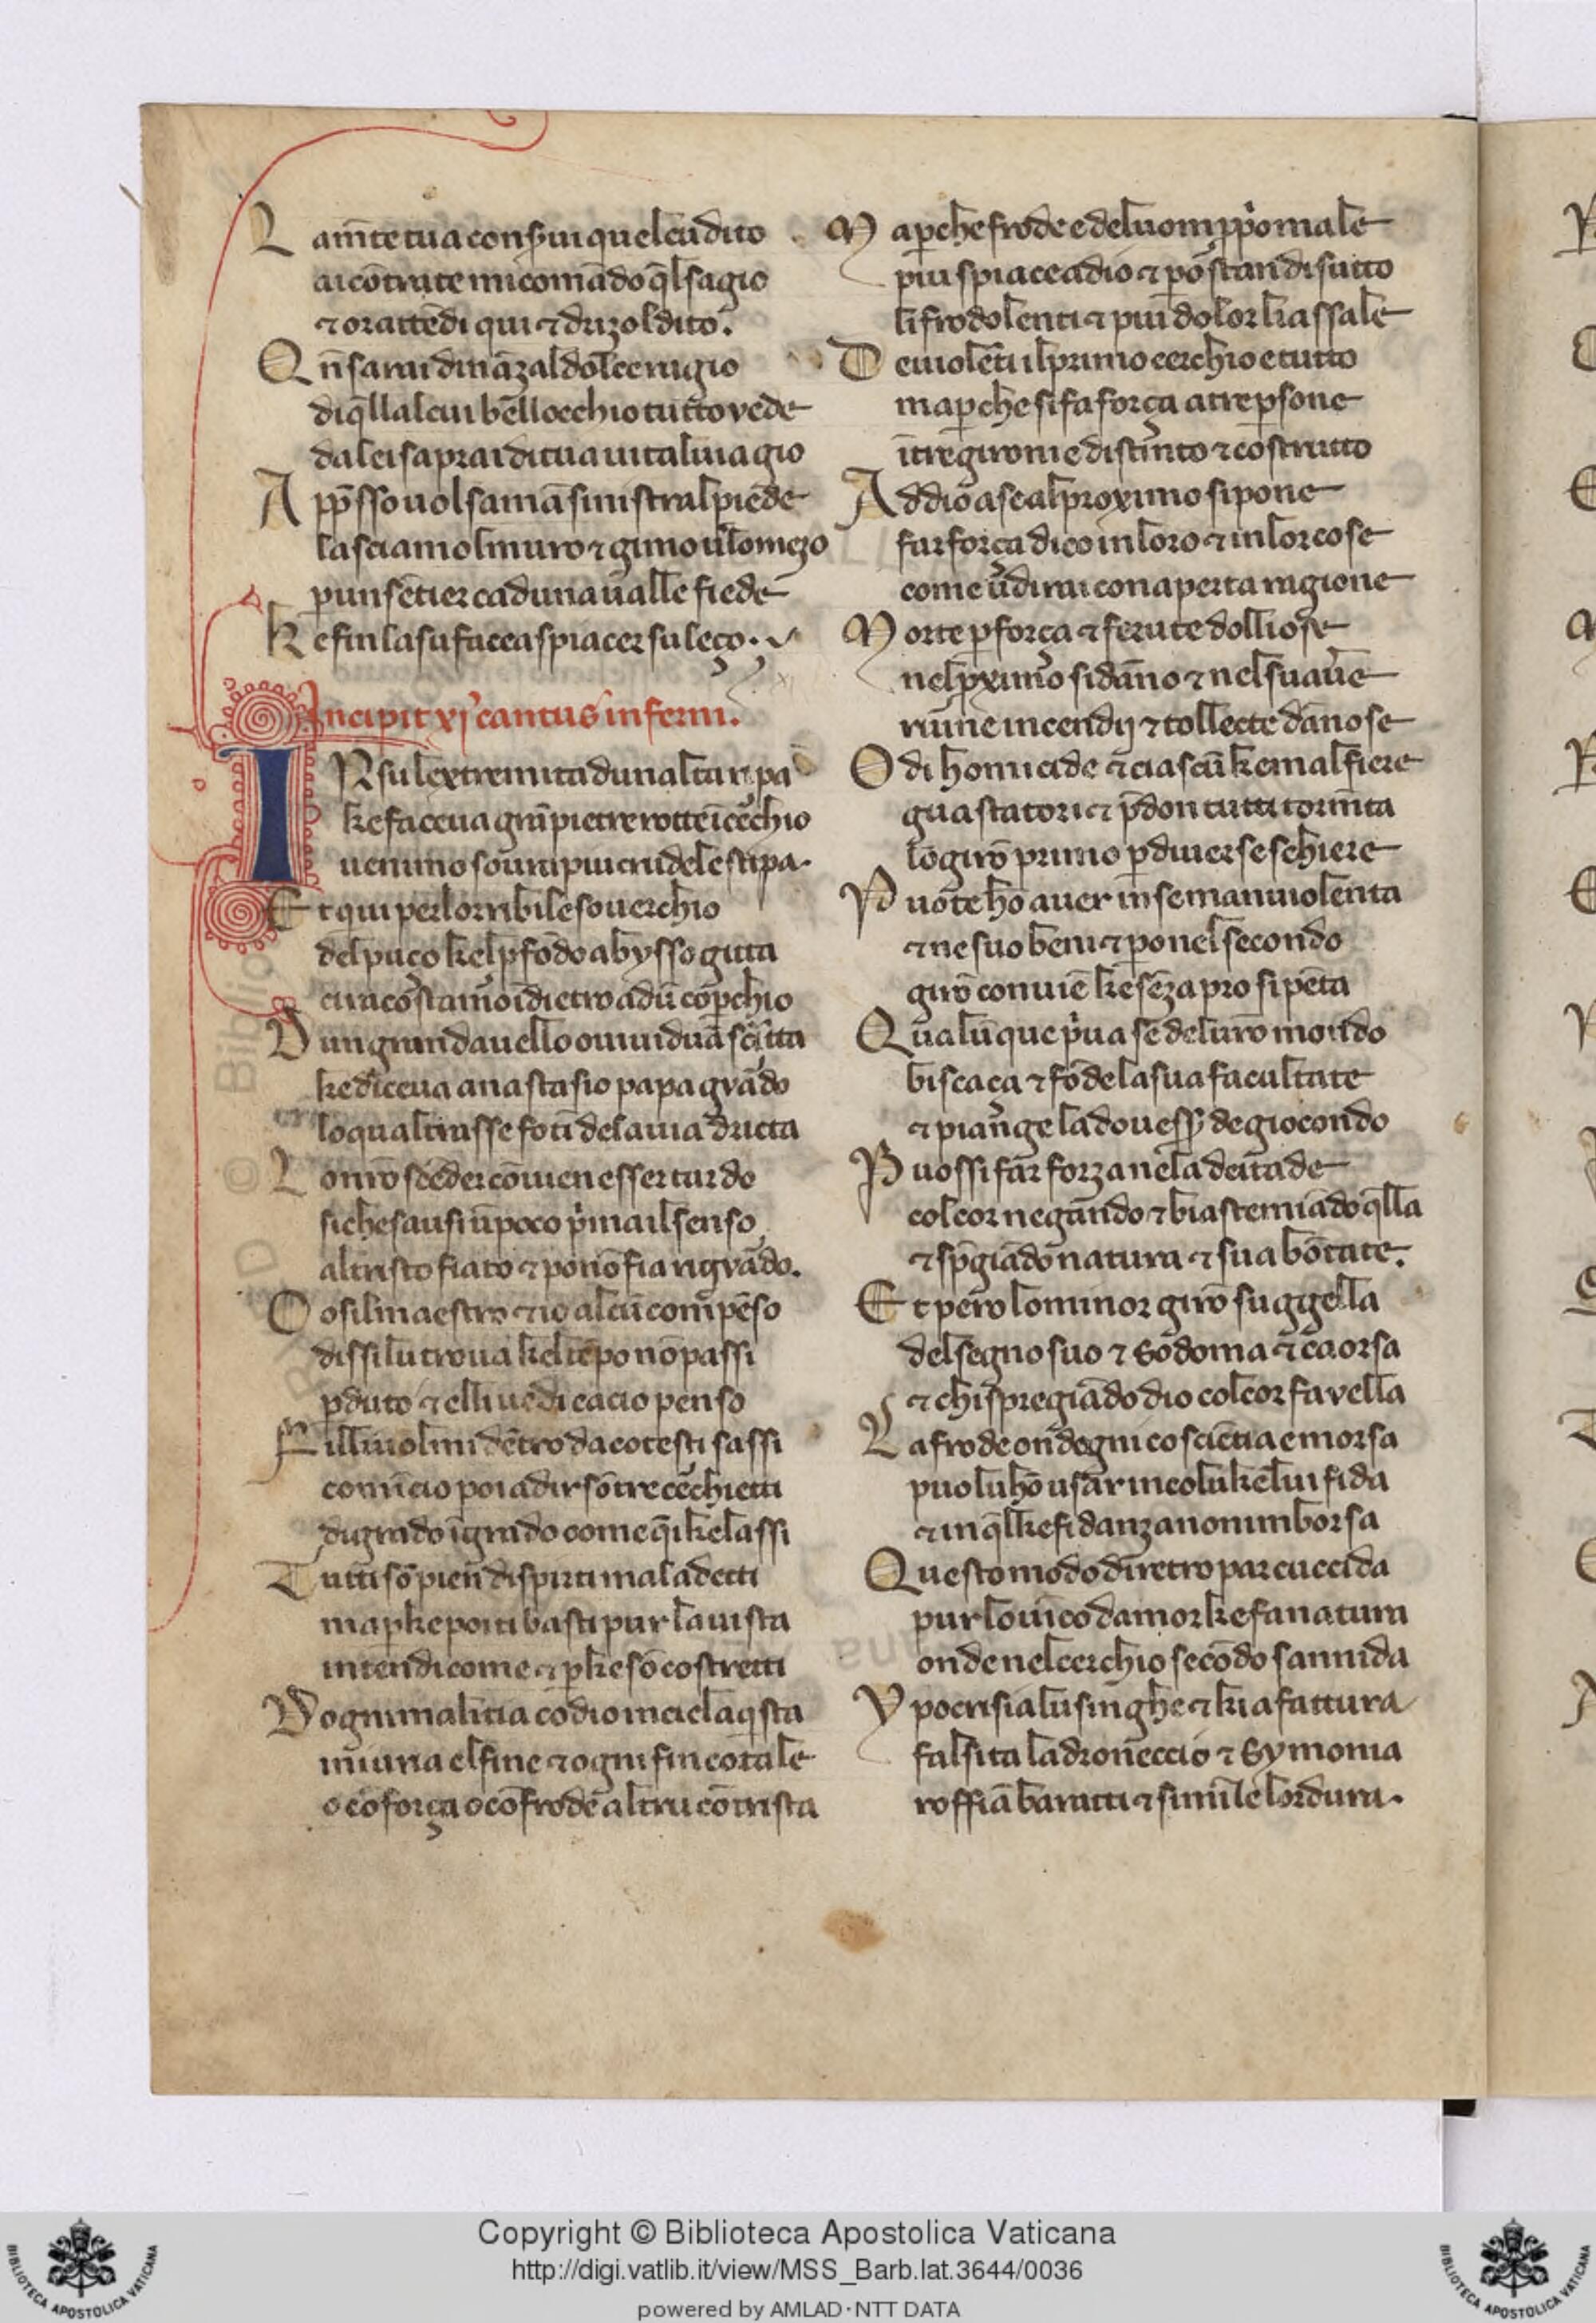 L am̄te tua conȣ̄ui quel cudito
ai cōtra te mi comādo q̄l sagio
⁊ or attēdi qui ⁊ drizo l dito.
Qn̄ sarai dināz al dolce ragio
di q̄lla l cui bell occhio tutto vede
da lei saprai di tua uita l uiagio
A pp̄sso uolsa mā sinistra l piede
lasciamo l muro ⁊ gimo ūlo mezo
p un sētier cad una ualle fiede
K e fin lasu facea spiacer su leço.
Incipit xj cantus inferni.
IN su l extremita d una lta ripa
ke faceua grā pietre rotte ī cerchio
uenimo soura piu crudele stipa.
E t qui per l orribile soverchio
del puço kel p̄fōdo abysso gitta
ci racostamo īdietro ad ū cop̄chio
D un grand avello ov iuidi uā scͥtta
ke diceua anastasio papa gvādo
lo qual trasse fotī dela uia dricta
L o nr̄o scēder cōuien esser tardo
si che s ausi ū poco pͥma il senso
al tristo fiato ⁊ po nō fia rigvādo.
C osi l maestro ⁊ io alcū compēso
dissi lui trova kel tēpo nō passi
p̱duto ⁊ elli uedi ca cio penso
F illiuol mi dētro da cotesti sassi
comīcio poi a dir sō tre cēchietti
di grado ī grado come q̄i ke lassi
T utti sō pien di spirti maladetti
ma p̱ke poi ti basti pur la uista
intendi come ⁊ p̱ke sō costretti
D ogni malitia cōdio in cielaq̄sta
iniuria el fine ⁊ ogni fin cotale
o cō força o cō frode altrui cōtrista
M a p̱che frode e del uom pp̱ͦo male
piu spiace a dio ⁊ po stan di sutto
li frodolenti ⁊ piu dolor li assale
D e uiolēti il primo cerchio e tutto
ma p̱che si fa força a tre p̱sone
ī tre gironi e distinto ⁊ costrutto
A d dio a se al proximo si pone
far força dico in loro ⁊ in lor cose
come udirai con aperta ragione
M orte p̱ força ⁊ ferute dolliose
nel p̱ximo si dāno ⁊ nel su avē
ruine incendij ⁊ tollecte dānose
O di homicide ⁊ ciascū ke mal fiere
guastatori ⁊ p̄don tutti tormēta
lo girō primo p̱ diuerse schiere
P uote hō aver in se man uiolenta
⁊ ne suo beni ⁊ po nel secondo
girō conuiē ke sēza pro si pēta
Q ualūque pͥua se del ur̄o mondo
biscaça ⁊ fōde la sua facultate
⁊ piange la dov ess̄ de giocondo
P uossi far forza nela deitade
col cor negando ⁊ biastemiādo q̄lla
⁊ sp̄giādo natura ⁊ sua bōtate.
E t pero lo minor girō suggella
del segno suo ⁊ sodoma ⁊ caorsa
⁊ chi spregiādo dio col cor favella
L a frode ond ogni cosciētia e morsa
puo lu hō usar in colui ke lui fida
⁊ in q̄l ke fidanza non imborsa
Q uesto modo di retro par cuccida
pur lo uīco d amor ke fa natura
onde nel cerchio secōdo s annida
Y pocrisia lusinghe ⁊ ki afattura
falsita ladroneccio ⁊ symonia
roffiā baratti ⁊ simile lordura.
Copyright © Biblioteca Apostolica Vaticana
http://digi.vatlib.it/view/MSS_Barb.lat.3644/0036
powered by AMLAD·NTT DATA
BIBLIOTECA APOSTOLICA VATICANA
BIBLIOTECA APOSTOLICA VATICANA